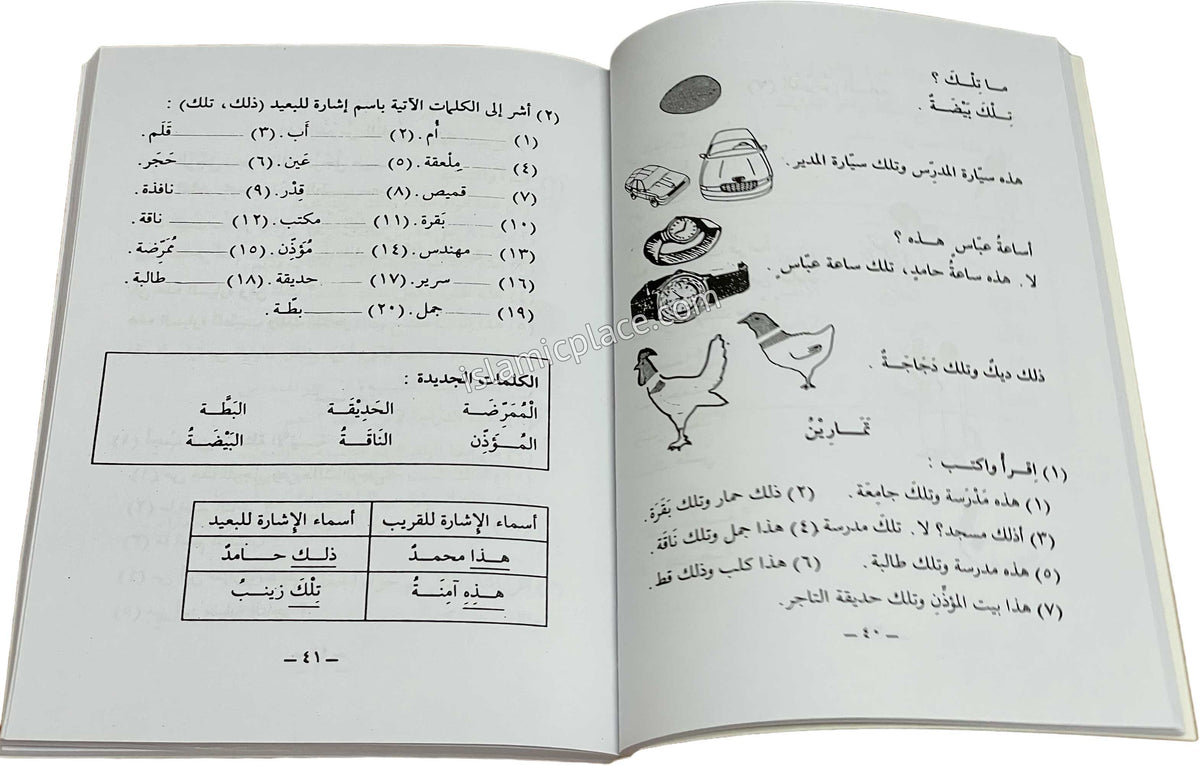 ما تِلْكَ ؟
تِلْكَ بَيْضَةٌ .
هذه سيّارة المدرّس وتلك سيّارة المدير.
أساعةُ عبّاسٍ هذه ؟
لا. هذه ساعةُ حامدٍ، تلك ساعة عبّاسٍ.
ذلك ديكٌ وتلك دَجَاجَةٌ .
تَمَارِيْنُ
(١) اِقرأ واكتب :
(١) هذه مَدْرَسة وتلكَ جامِعَة. (٢) ذلك حمار وتلك بَقَرَة.
(٣) أذلك مسجد؟ لا. تلكَ مدرسة (٤) هذا جمل وتلك نَاقَة.
(٥) هذه مدرسة وتلك طالبة. (٦) هذا كلب وذلك قط.
(٧) هذا بيت المؤذّنِ وتلك حديقة التاجر.
– ٤٠ –
(٢) أشر إلى الكلمات الآتية باسم إشارة للبعيد (ذلك، تلك) :
(١) ______ أُم. (٢) ______ أَب. (٣) ______ قَلَم.
(٤) ______ مِلْعقة. (٥) ______ عَين. (٦) ______ حَجَر.
(٧) ______ قميص. (٨) ______ قِدْر. (٩) ______ نافذة.
(١٠) ______ بَقرة. (١١) ______ مكتب. (١٢) ______ ناقة.
(١٣) ______ مهندس. (١٤) ______ مُؤَذّن. (١٥) ______ مُمَرِّضة.
(١٦) ______ سرير. (١٧) ______ حديقة. (١٨) ______ طالبة.
(١٩) ______ جمل. (٢٠) ______ بطّة.
الكلمات الجديدة :
الْمُمَرِّضَة الحَدِيْقَة البَطَّة
المُؤَذّن النَاقَةُ البَيْضَةُ
أسماء الإشارة للقريب أسماء الإشارة للبعيد
هذا محمدٌ ذلك حامدٌ
هذِهِ آمِنَةُ تِلْكَ زينبُ
– ٤١ –
islamicplace.com